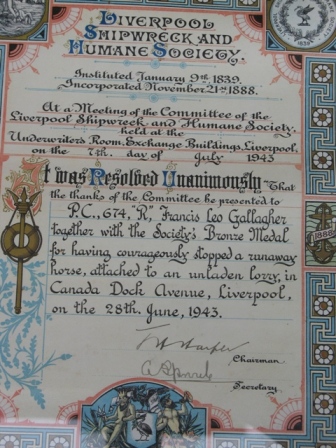 Liverpool
Shipwreck and
Humane Society.
Instituted January 9th 1839.
Incorporated November 21st 1888.
At a Meeting of the Committee of the
Liverpool Shipwreck and Humane Society,
held at the
Underwriters Room, Exchange Buildings, Liverpool,
on the 7th. day of July 1943
It was Resolved Unanimously That
the thanks of the Committee be presented to
P.C. 674, "R", Francis Leo Gallagher
together with the Society's Bronze Medal
for having courageously stopped a runaway
horse, attached to an unladen lorry, in
Canada Dock Avenue, Liverpool,
on the 28th. June, 1943.
Chairman
Secretary
1839
1888